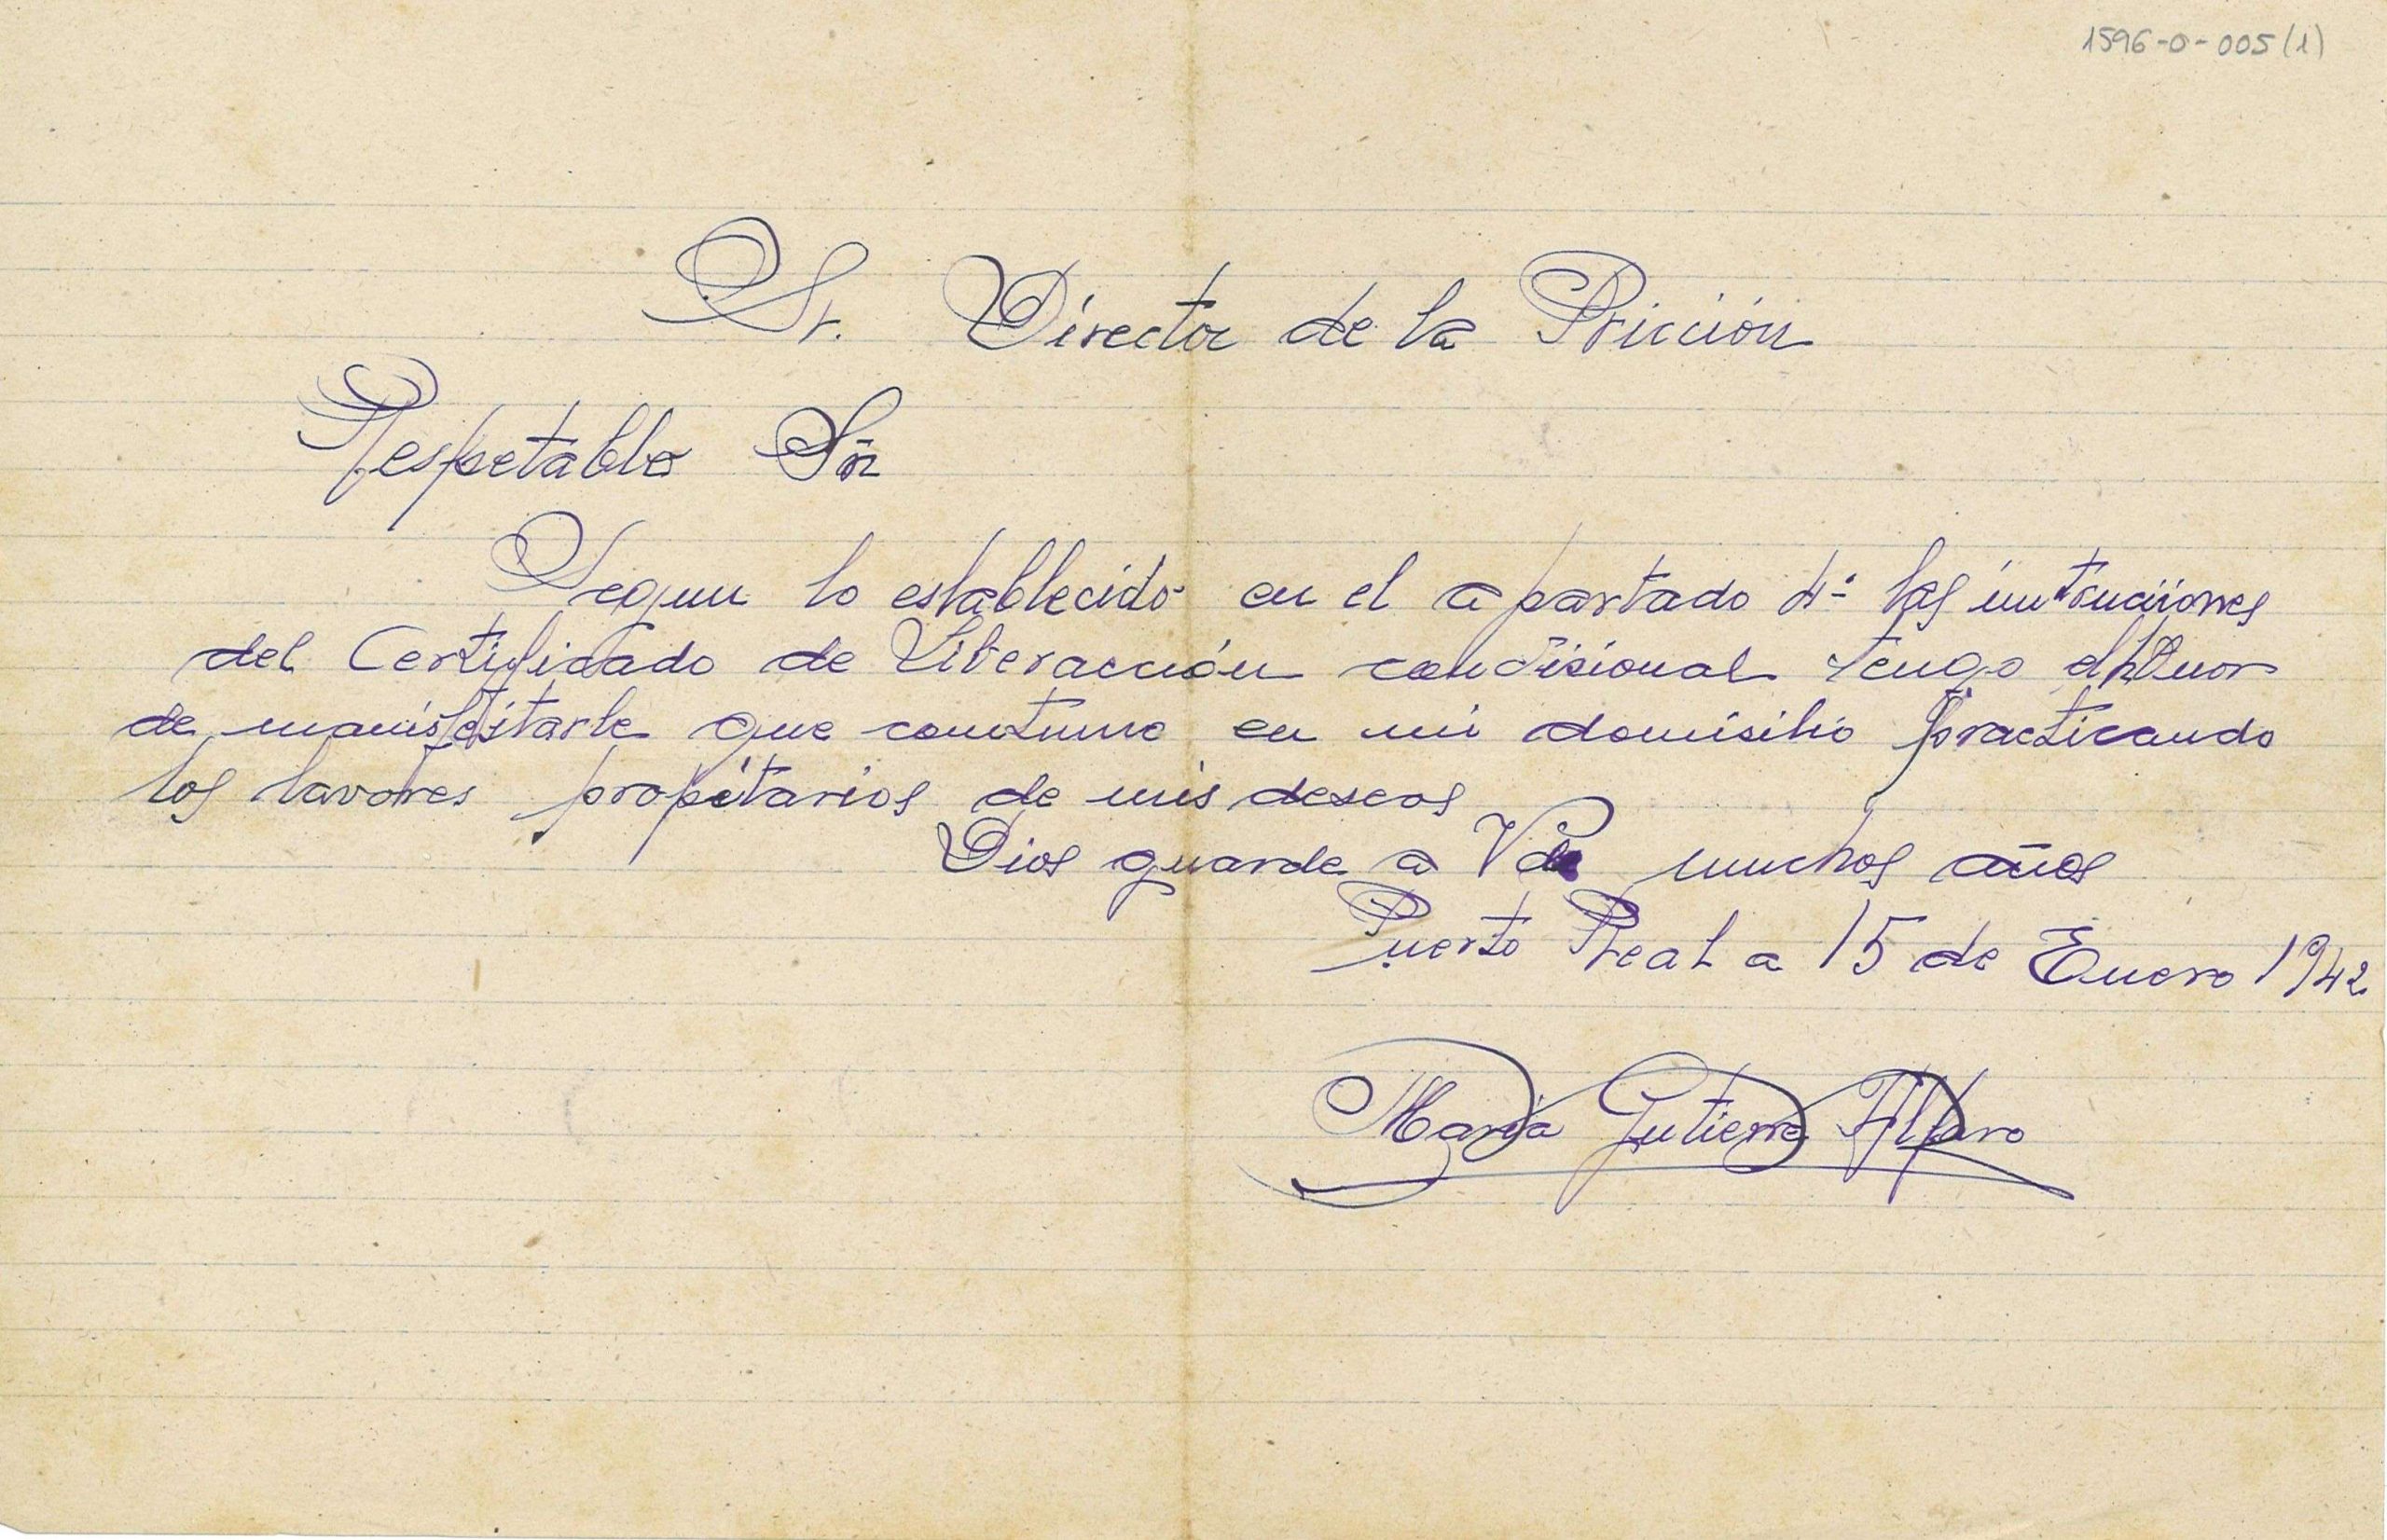 1596-0-005(1)
Sr. Director de la Pricción
Respetable Sr̃
Segun lo establecido en el apartado 4º las
del Certificado de Liberacción condisional tengo el
de que en mi domisilio practicando
los lavores propitarios de mis deseos
Dios guarde a Vd muchos años
Puerto Real a 15 de Enero 1942
Maria Gutierre Alfaro